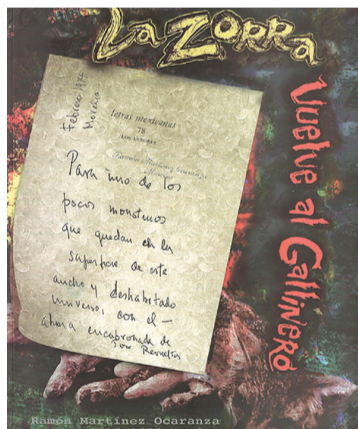 La Zorra
Vuelve al Gallinero
Febrero 1974
Morelia
letras mexicanas
78
Para uno de los
pocos monstruos
que quedan en la
superficie de este
ancho y deshabitado
universo, con el
de
José Revueltas
Ramón Martínez Ocaranza